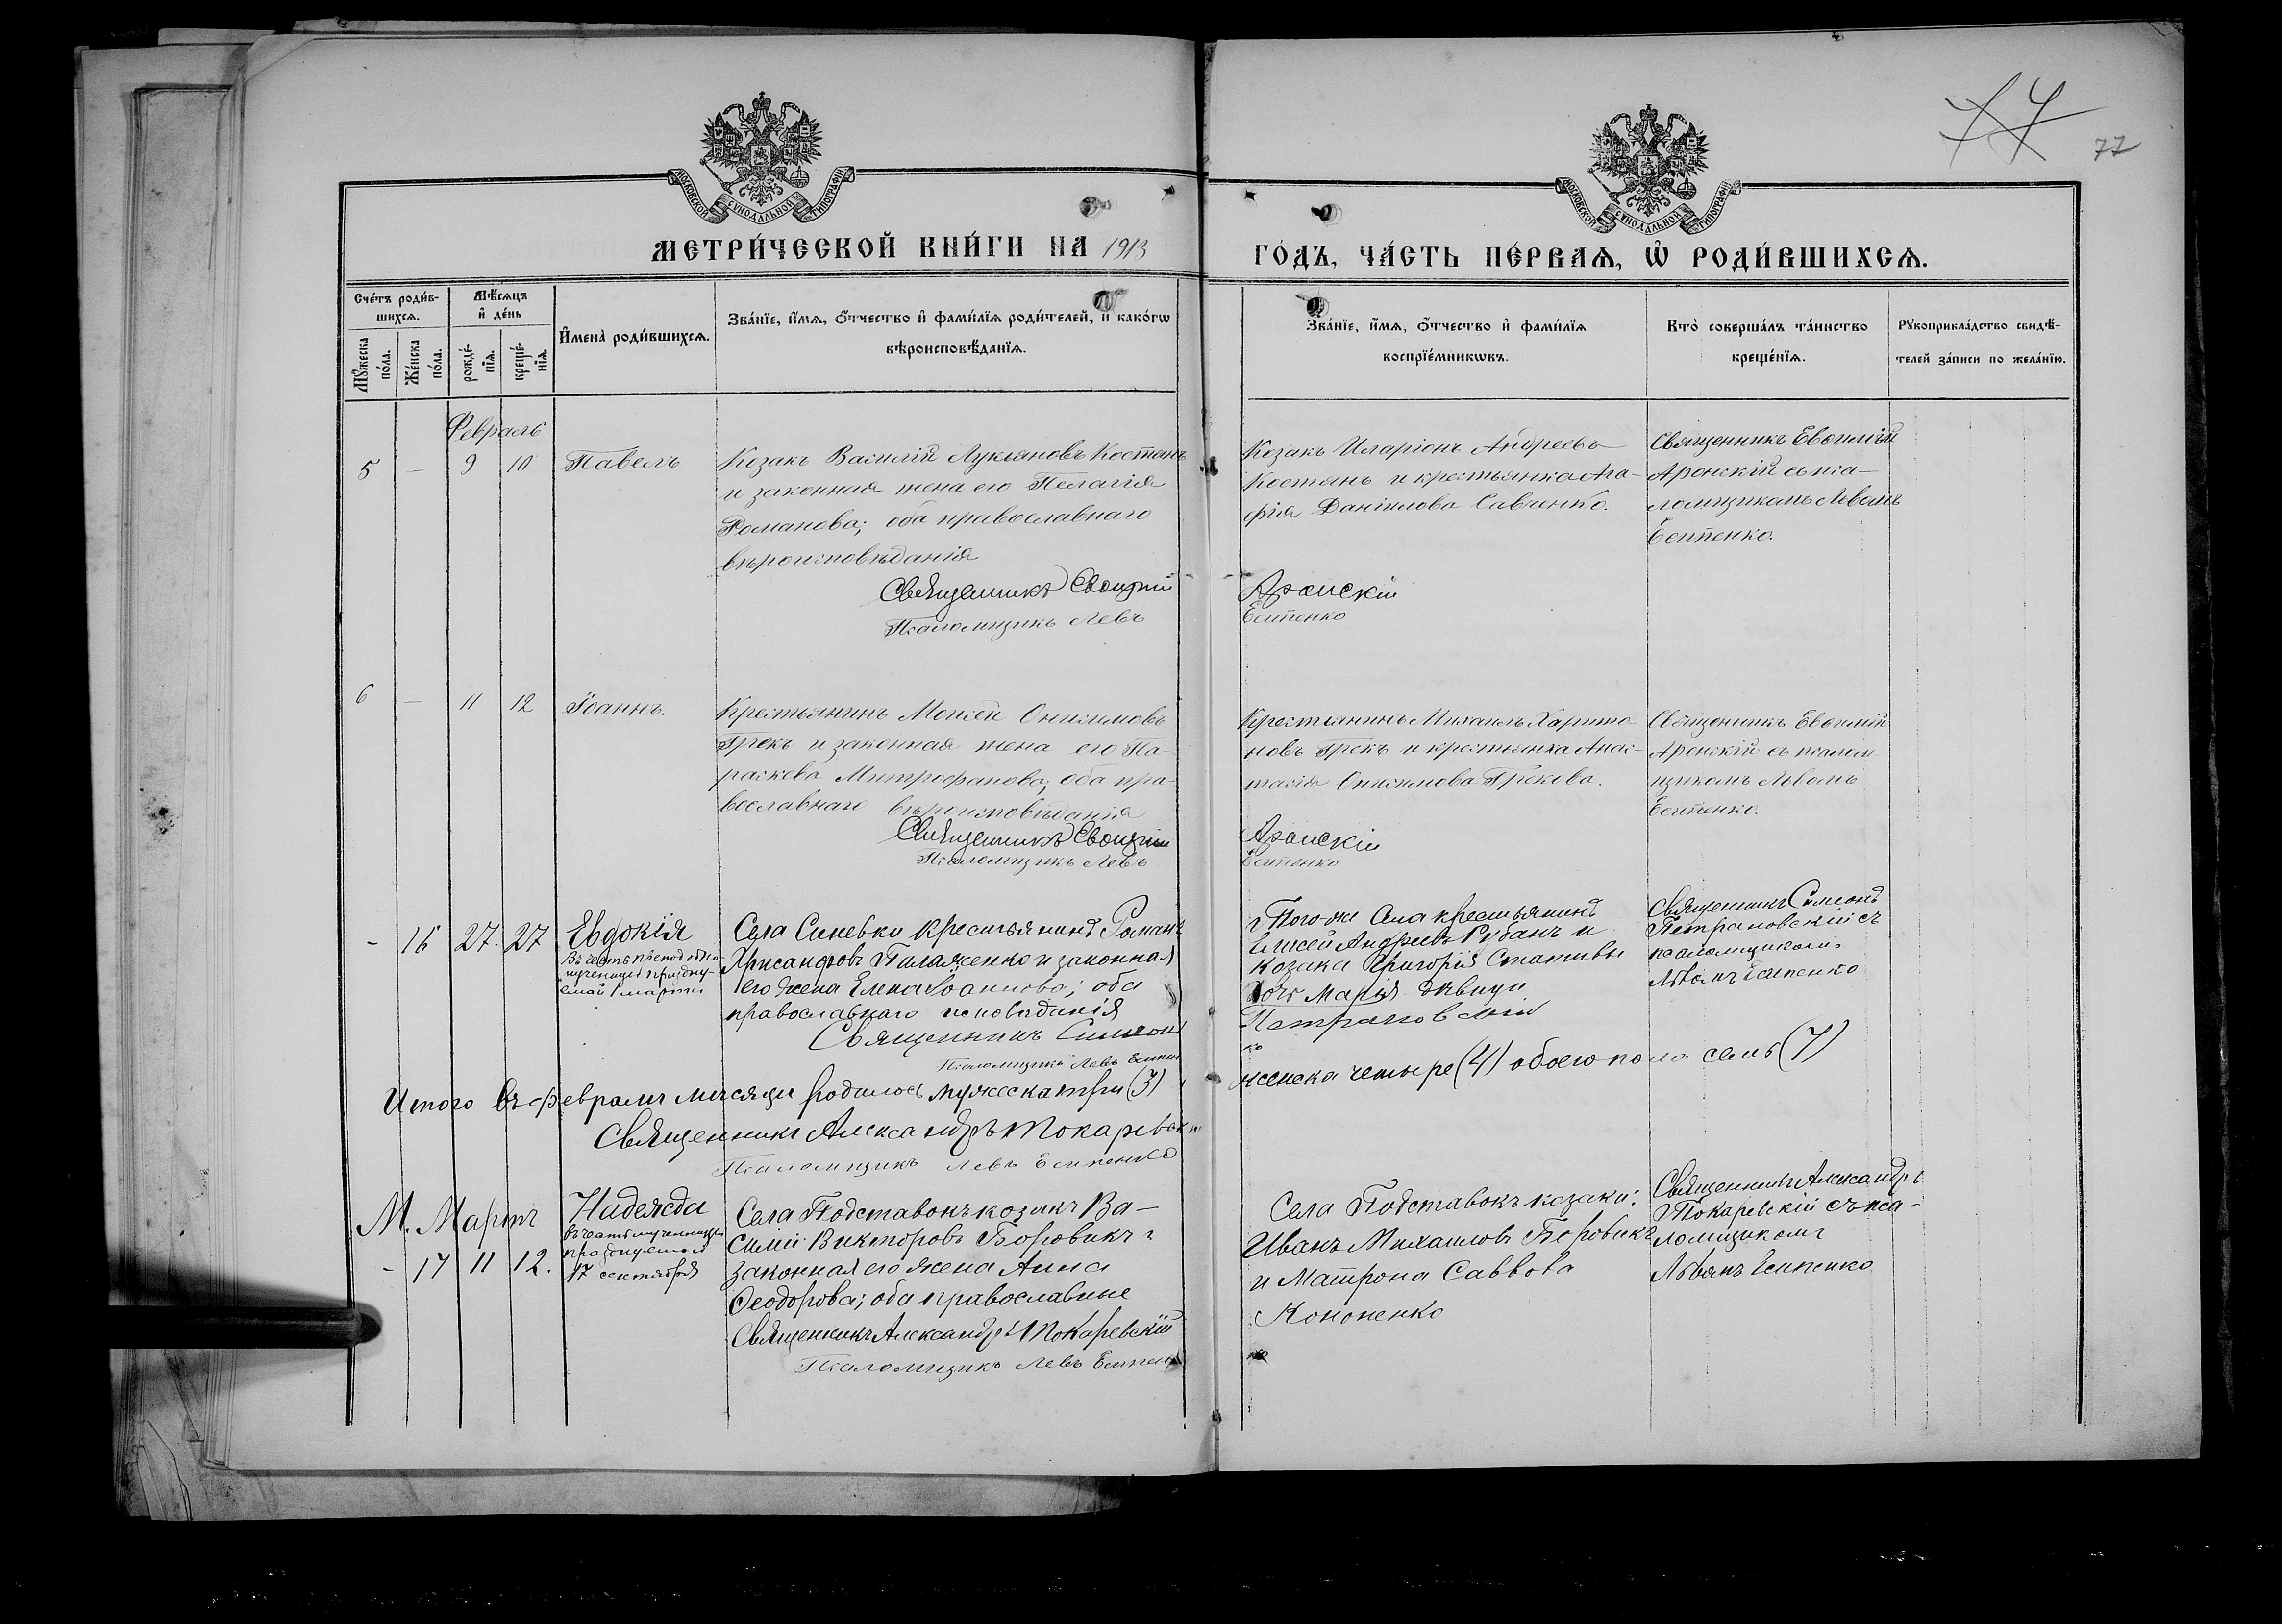 77
77
МОСКОВСКОЙ СѴНОДАЛЬНОЙ ТИПОГРАФІИ
МОСКОВСКОЙ СѴНОДАЛЬНОЙ ТИПОГРАФІИ
МЕТРИ́ЧЕСКОЙ КНИ́ГИ НА 1913
ГО́ДЪ, ЧА́СТЬ ПЕ́РВАѦ, Ѡ҆ РОДИ́ВШИХСѦ.
Сче́тъ роди́в-
шихсѧ.
Мꙋ́жеска
по́ла.
Же́нска
по́ла.
Мѣ́сѧцъ
и҆ де́нь
рожде́-
нїѧ.
креще́-
нїѧ.
И҆мена̀ роди́вшихсѧ.
Зва́нїе, и҆́мѧ, ѻ҆́тчество и҆ фами́лїѧ роди́телей, и҆ како́гѡ
вѣроисповѣ́данїѧ.
Зва́нїе, и҆́мѧ, ѻ҆́тчество и҆ фами́лїѧ
воспрїе́мникѡвъ.
Кто̀ соверша́лъ та́инство
креще́нїѧ.
Рꙋкоприкла́дство свидѣ́-
телей за́писи по жела́нїю.
Февраль
5 - 9 10 Павелъ
Козакъ Василій Лукіановъ Костянъ
и законная жена его Пелагія
Романова; оба православнаго
вѣроисповѣданія
Священникъ Евѳимій
Псаломщикъ Левъ
Козакъ Иларіонъ Андреевъ
Костянъ и крестьянка Ага-
фія Даніилова Савченко.
Аронскій
Есипенко
Священникъ Евѳимій
Аронскій съ пса-
ломщикомъ Львомъ
Есипенко.
6 - 11 12 Іоаннъ.
Крестьянинъ Моисей Онисимовъ
Грекъ и законная жена его Па-
раскева Митрофанова; оба пра-
вославнаго вѣроисповѣданія
Священникъ Евѳимій
Псаломщикъ Левъ
Крестьянинъ Михаилъ Харито-
новъ Грекъ и крестьянка Анас-
тасія Онисимова Грекова.
Аронскій
Есипенко
Священникъ Евѳимій
Аронскій съ псалом-
щикомъ Львомъ
Есипенко.
- 16 27. 27 Евдокія
въ честь препод.
мученицы праздну-
емой 1 марта
Села Синевки крестьянинъ Романъ
Хрисанфовъ Пилаженко и законная
его жена Елена Іоаннова; оба
православнаго исповѣданія
Священникъ Симеонъ
Псаломщикъ Левъ Есипен
Того-же села крестьянинъ
Елисей Андреевъ Рубанъ и
козака Григорія Стативы
дочь Марія дѣвица
Петрановскій
ко
Священникъ Симеонъ
Петрановскій съ
псаломщикомъ
Львомъ Есипенко
Итого въ февралѣ мѣсяцѣ родилось мужеска три (3)
женска четыре (4) обоего пола семь (7)
Священникъ Александръ Токаревскій
Псаломщикъ Левъ Есипенко
М. Мартъ
- 17 11 12.
Надежда
въ честь мученицы
празднуемой
17 сентября
Села Подставокъ козакъ Ва-
силій Викторовъ Боровикъ и
законная его жена Анна
Ѳеодорова; оба православные
Священникъ Александръ Токаревскій
Псаломщикъ Левъ Есипен
Села Подставокъ козаки:
Иванъ Михаиловъ Боровикъ
и Матрона Саввова
Кононенко
ко
Священникъ Александръ
Токаревскій съ пса-
ломщикомъ
Львомъ Есипенко